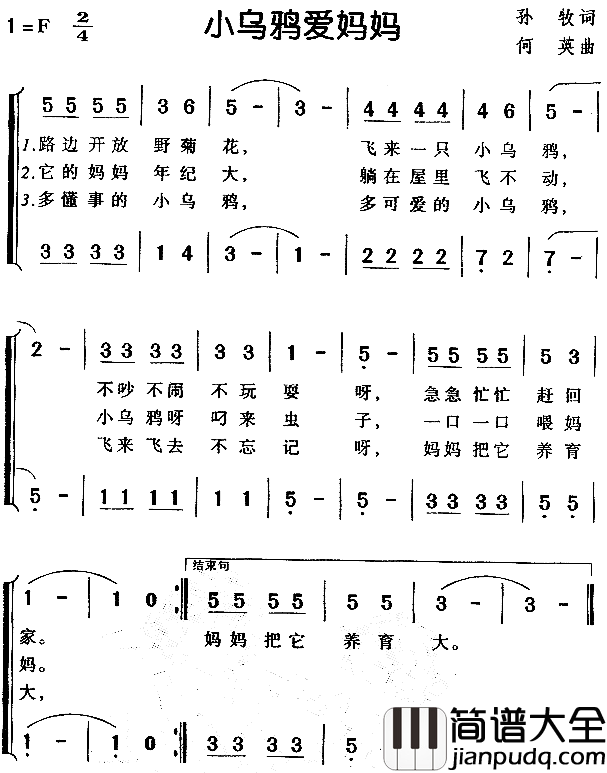 1=F 2/4 小乌鸦爱妈妈 孙 牧词
何 英曲
5 5 5 5 | 3 6 | 5 - | 3 - | 4 4 4 4 | 4 6 | 5 - |
1.路边开放 野菊花， 飞来一只 小乌鸦，
2.它的妈妈 年纪大， 躺在屋里 飞不动，
3.多懂事的 小乌鸦， 多可爱的 小乌鸦，
3 3 3 3 | 1 4 | 3 - | 1 - | 2 2 2 2 | 7 2 | 7 - |
2 - | 3 3 3 3 | 3 3 | 1 - | 5 - | 5 5 5 5 | 5 3 |
不吵不闹 不玩耍 呀， 急急忙忙 赶回
小乌鸦呀 叼来虫 子， 一口一口 喂妈
飞来飞去 不忘记 呀， 妈妈把它 养育
5 - | 1 1 1 1 | 1 1 | 5 - | 5 - | 3 3 3 3 | 5 5 |
结束句
1 - | 1 0 :| 5 5 5 5 | 5 5 | 3 - | 3 - |
家。 妈妈把它 养育 大。
妈。
大，
1 - | 1 0 :| 3 3 3 3 | 5
简谱大全
jianpudq.com